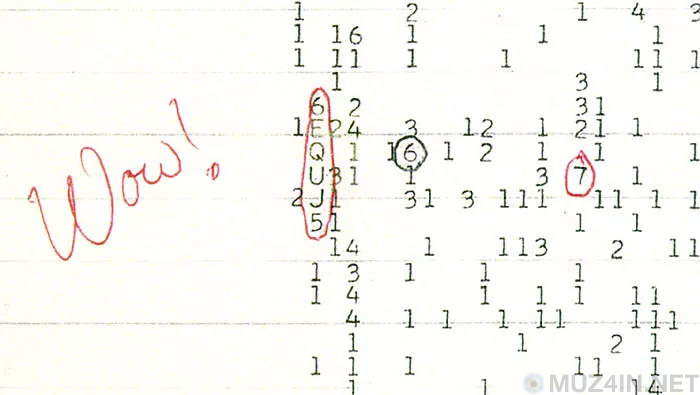 1 2 1 4 3
1 16 1 1 1
1 11 1 1 11 1
1 3 1
6 2 31
1 E24 3 12 1 21 1
Q 1 16 1 2 1 1 1
U31 1 3 7 1
2 J1 31 3 111 11 1 1
51 1 1
14 1 113 2 11
1 3 1 1 1
1 4 1 1 1 11
4 1 1 1 11 111
1 1 2 1
1 1 1 11 1
1 1 14
Wow!
MUZ4IN.NET